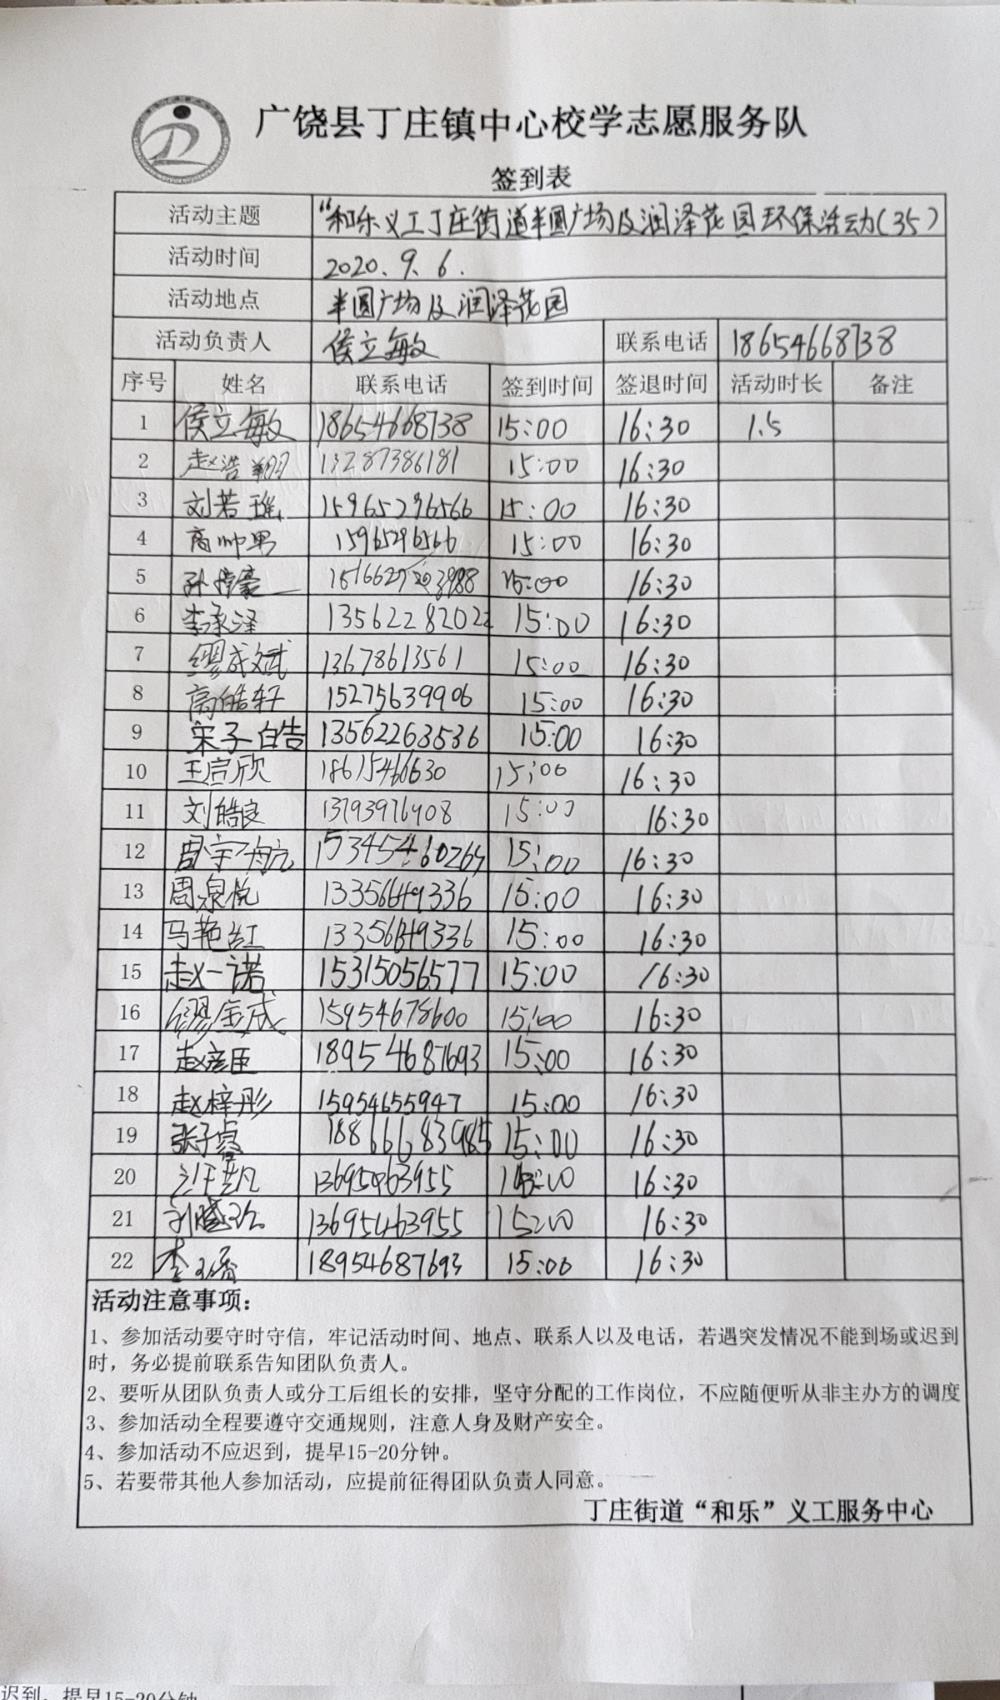 广饶县丁庄镇中心校学志愿服务队
签到表
活动主题 “和乐义工丁庄街道半圆广场及润泽花园环保活动(35)
活动时间 2020.9.6.
活动地点 半圆广场及润泽花园
活动负责人 侯立敏 联系电话 18654668738
序号 姓名 联系电话 签到时间 签退时间 活动时长 备注
1 侯立敏 18654668738 15:00 16:30 1.5
2 赵浩翔 13287386181 15:00 16:30
3 刘若瑶 15965296566 15:00 16:30
4 商帅男 15965296566 15:00 16:30
5 15:00 16:30
6 李承泽 13562282022 15:00 16:30
7 缪成斌 13678613561 15:00 16:30
8 高皓轩 15275639906 15:00 16:30
9 宋子皓 13562263536 15:00 16:30
10 王启欣 18615466630 15:00 16:30
11 刘皓良 13793976908 15:00 16:30
12 周宇航 15:00 16:30
13 周泉悦 13356649336 15:00 16:30
14 马艳红 13356649336 15:00 16:30
15 赵一诺 15315056577 15:00 16:30
16 缪金成 15954678600 15:00 16:30
17 赵彦臣 18954687693 15:00 16:30
18 赵梓彤 15954655947 15:00 16:30
19 张子睿 18866683985 15:00 16:30
20 13695463955 16:30
21 13695463955 15:00 16:30
22 李 18954687693 15:00 16:30
活动注意事项：
1、参加活动要守时守信，牢记活动时间、地点、联系人以及电话，若遇突发情况不能到场或迟到
时，务必提前联系告知团队负责人。
2、要听从团队负责人或分工后组长的安排，坚守分配的工作岗位，不应随便听从非主办方的调度
3、参加活动全程要遵守交通规则，注意人身及财产安全。
4、参加活动不应迟到，提早15-20分钟。
5、若要带其他人参加活动，应提前征得团队负责人同意。
丁庄街道“和乐”义工服务中心
迟到，提早15-20分钟